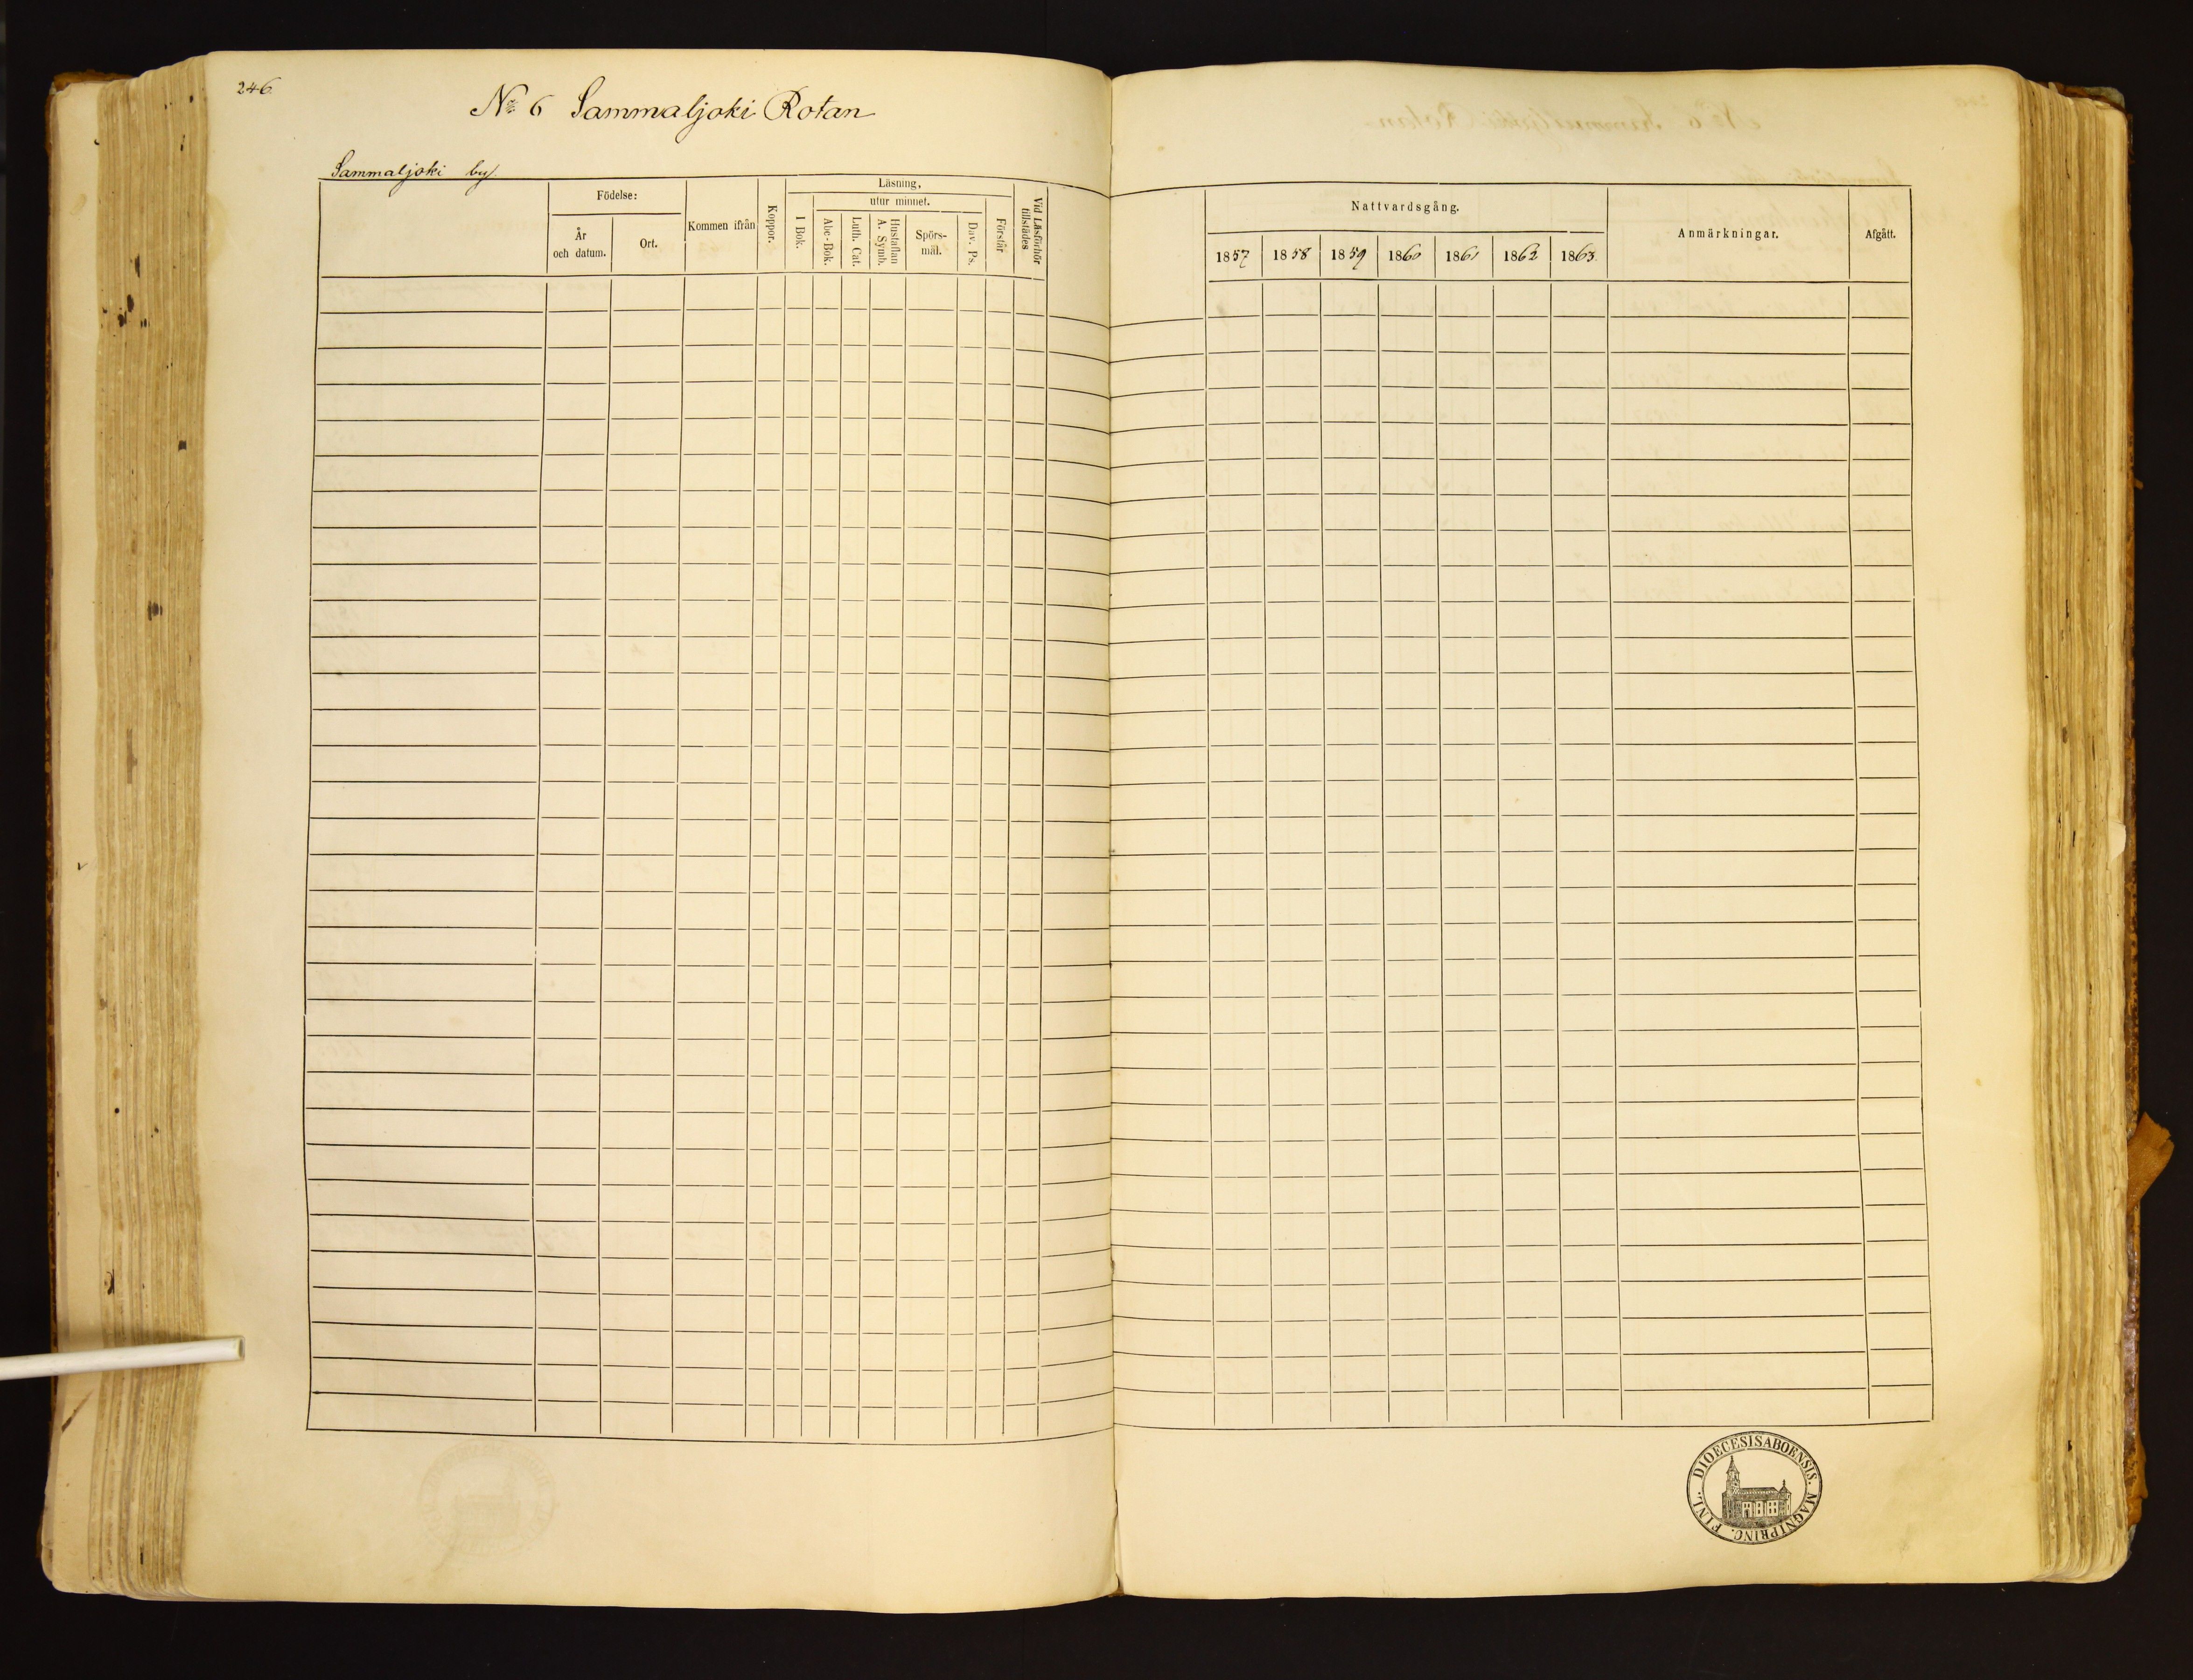 246.
No 6 Sammaljoki Rotan
Sammaljoki by.
Födelse:
År
och datum.
Ort.
Kommen ifrån
Koppor.
Läsning,
I Bok.
utur minnet.
Abc-Bok.
Luth. Cat.
Hustaflan
A. Symb.
Spörs-
mål.
Dav. Ps.
Förstår
Vid Läsförhör
tillstädes
Nattvardsgång.
1857 1858 1859 1860 1861 1862 1863.
Anmärkningar.
Afgått.
DIOECESIS ABOENSIS. MAGNI PRINC. FINL.